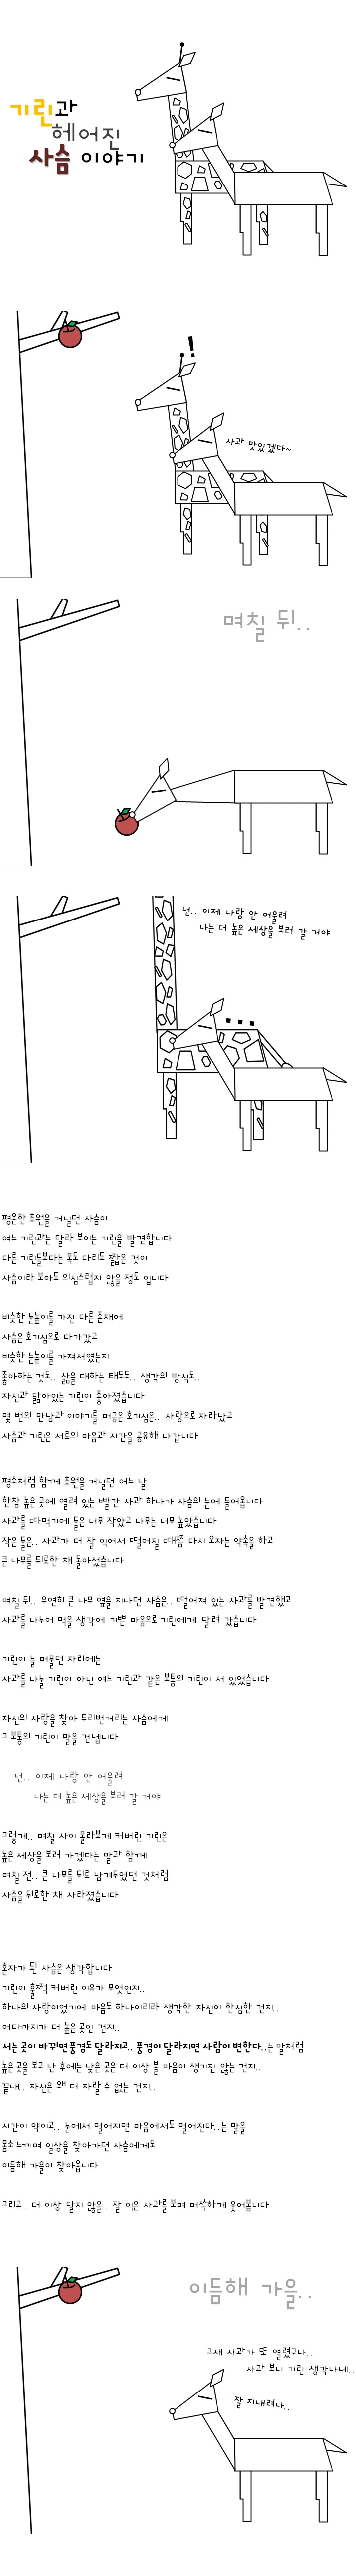 기린과
헤어진
사슴 이야기
!
사과 맛있겠다~
며칠 뒤..
넌.. 이제 나랑 안 어울려
나는 더 높은 세상을 보러 갈 거야
...
평온한 초원을 거닐던 사슴이
여느 기린과는 달라 보이는 기린을 발견합니다
다른 기린들보다는 목도 다리도 짧은 것이
사슴이라 보아도 의심스럽지 않을 정도 입니다
비슷한 눈높이를 가진 다른 존재에
사슴은 호기심으로 다가갔고
비슷한 눈높이를 가져서였는지
좋아하는 것도.. 삶을 대하는 태도도.. 생각의 방식도..
자신과 닮아있는 기린이 좋아졌습니다
몇 번의 만남과 이야기를 머금은 호기심은.. 사랑으로 자라났고
사슴과 기린은 서로의 마음과 시간을 공유해 나갑니다
평소처럼 함께 초원을 거닐던 어느 날
한참 높은 곳에 열려 있는 빨간 사과 하나가 사슴의 눈에 들어옵니다
사과를 따먹기에 둘은 너무 작았고 나무는 너무 높았습니다
작은 둘은.. 사과가 더 잘 익어서 떨어질 때쯤 다시 오자는 약속을 하고
큰 나무를 뒤로한 채 돌아섰습니다
며칠 뒤.. 우연히 큰 나무 옆을 지나던 사슴은.. 떨어져 있는 사과를 발견했고
사과를 나누어 먹을 생각에 기쁜 마음으로 기린에게 달려 갔습니다
기린이 늘 머물던 자리에는
사과를 나눌 기린이 아닌 여느 기린과 같은 보통의 기린이 서 있었습니다
자신의 사랑을 찾아 두리번거리는 사슴에게
그 보통의 기린이 말을 건넵니다
넌.. 이제 나랑 안 어울려
나는 더 높은 세상을 보러 갈 거야
그렇게.. 며칠 사이 몰라보게 커버린 기린은
높은 세상을 보러 가겠다는 말과 함께
며칠 전.. 큰 나무를 뒤로 남겨두었던 것처럼
사슴을 뒤로한 채 사라졌습니다
혼자가 된 사슴은 생각합니다
기린이 훌쩍 커버린 이유가 무엇인지..
하나의 사랑이었기에 마음도 하나이리라 생각한 자신이 한심한 건지..
어디까지가 더 높은 곳인 건지..
서는 곳이 바뀌면 풍경도 달라지고.. 풍경이 달라지면 사람이 변한다..는 말처럼
높은 곳을 보고 난 후에는 낮은 곳은 더 이상 볼 마음이 생기진 않는 건지..
끝내.. 자신은 왜 더 자랄 수 없는 건지..
시간이 약이고.. 눈에서 멀어지면 마음에서도 멀어진다..는 말을
몸소 느끼며 일상을 찾아가던 사슴에게도
이듬해 가을이 찾아옵니다
그리고.. 더 이상 달지 않을.. 잘 익은 사과를 보며 머쓱하게 웃어봅니다
이듬해 가을..
그새 사과가 또 열렸구나..
사과 보니 기린 생각나네..
잘 지내려나..